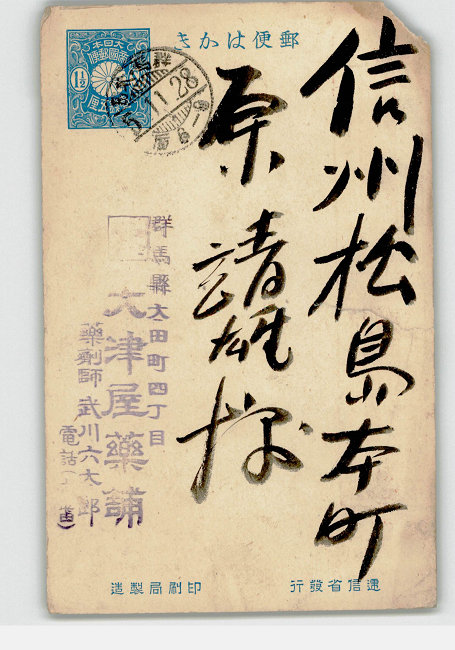 郵便はかき
大日本
帝國郵便
1½
信州松島本町
原 靖雄様
群馬縣太田町四丁目
大津屋藥舗
藥劑師 武川六太郎
電話
11.28
遞信省發行
印刷局製造